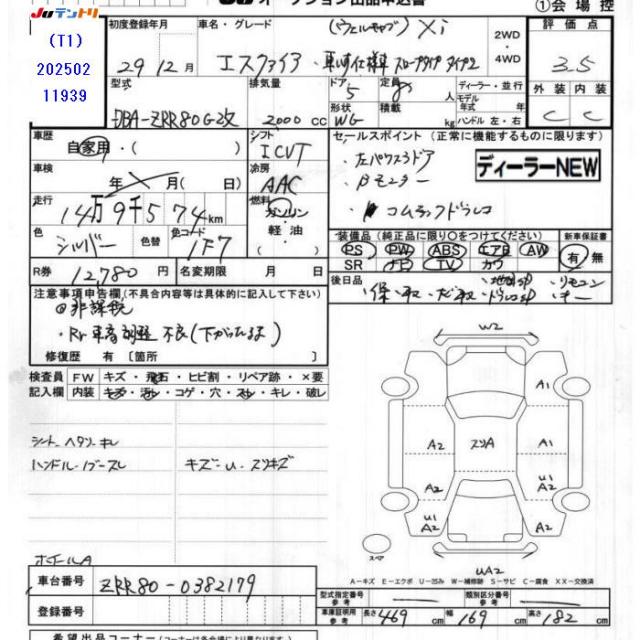 Juテントリ
オークション出品申込書
①会場控
(T1)
202502
11939
初度登録年月
車名・グレード
2WD
・
4WD
評価点
29年12月
エスクァイア
(ウェルキャブ) Xi
車いす仕様車 スロープタイプ タイプ2
3.5
型式
排気量
ドア
定員
ディーラー・並行
外装
内装
DBA-ZRR80G改
2000 cc
5
8人
モデル年式 年
形状
積載
WG
kg
ハンドル 左・右
C
C
車歴
自家用・( )
シフト
ICVT
セールスポイント (正常に機能するものに限ります)
車検
年 月( 日)
冷房
AAC
・左パワスラドア
・Bモニター
・コムテックドラレコ
ディーラーNEW
走行
14万9千574km
燃料
ガソリン
軽油
( )
色
シルバー
色替
色コード
1F7
装備品 (純正品に限り○をつけてください)
新車保証書
PS PW ABS エアB AW
SR ナビ TV カワ
有・無
R券
12,780円
名変期限 月 日
後日品
・保・取・ナビ取
・リモコン
・キー
注意事項申告欄(不具合内容等は具体的に記入して下さい)
@非課税
・Rr車高調整不良(下がったまま)
修復歴 有 [箇所 ]
検査員
記入欄
FW キズ・飛石・ヒビ割・リペア跡・×要
内装 キズ・汚れ・コゲ・穴・スレ・キレ・破レ
シートヘタリ・キレ
ハンドル・ノブスレ
キズ・U・スリキズ
ホイールA
W2
A1
A2
スリA
A1
A2
A2
U1
A2
U1
A2
スペア
UA2
A－キズ E－エクボ U－凹み W－補修跡 S－サビ C－腐食 XX－交換済
車台番号
ZRR80-0382179
登録番号
型式指定番号
参考
類別区分番号
参考
車庫証明用
参考
長さ 469 cm
幅 169 cm
高さ 182 cm
希望出品コーナー(コーナーは各会場により異なります)